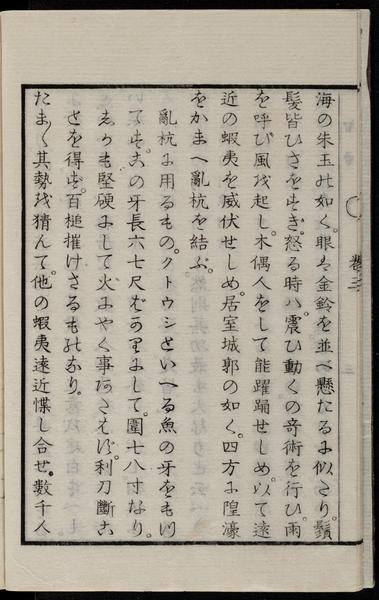 海の朱玉の如く。眼は金鈴を並べ懸たるに似たり。鬚
髪皆ひさをすぎ。怒る時ハ。震ひ動くの奇術を行ひ。雨
を呼び風を起し。木偶人をして能躍踊せしめ。以て遠
近の蝦夷を威伏せしめ。居室城郭の如く。四方に隍濠
をかまへ亂杭を結ぶ。
亂杭に用るもの。クトウシといへる魚の牙をもつ
てす。この牙長六七尺ばかりにして。圍七八寸なり。
しかも堅硬にして火にやく事あたはず。利刀斷こ
とを得ず。百槌摧けさるものなり。
たま〳〵其勢を猜んて。他の蝦夷遠近慄し合せ。數千人